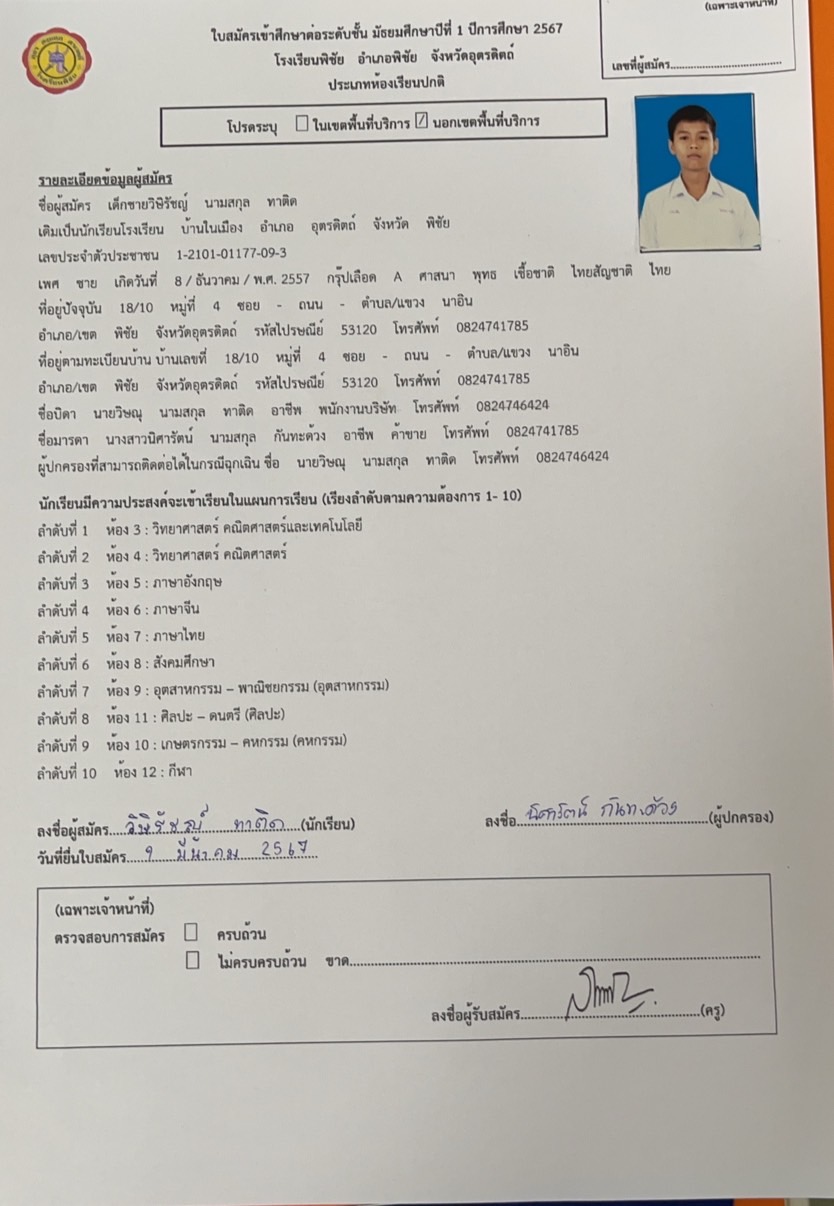 (เฉพาะเจ้าหน้าที่)
ใบสมัครเข้าศึกษาต่อระดับชั้น มัธยมศึกษาปีที่ 1 ปีการศึกษา 2567
โรงเรียนพิชัย อำเภอพิชัย จังหวัดอุตรดิตถ์
เลขที่ผู้สมัคร
ประเภทห้องเรียนปกติ
โปรดระบุ ☐ ในเขตพื้นที่บริการ ☑ นอกเขตพื้นที่บริการ
รายละเอียดข้อมูลผู้สมัคร
ชื่อผู้สมัคร เด็กชายวิษิรัชญ์ นามสกุล ทาติด
เดิมเป็นนักเรียนโรงเรียน บ้านในเมือง อำเภอ อุตรดิตถ์ จังหวัด พิชัย
เลขประจำตัวประชาชน 1-2101-01177-09-3
เพศ ชาย เกิดวันที่ 8 / ธันวาคม / พ.ศ. 2557 กรุ๊ปเลือด A ศาสนา พุทธ เชื้อชาติ ไทยสัญชาติ ไทย
ที่อยู่ปัจจุบัน 18/10 หมู่ที่ 4 ซอย - ถนน - ตำบล/แขวง นาอิน
อำเภอ/เขต พิชัย จังหวัดอุตรดิตถ์ รหัสไปรษณีย์ 53120 โทรศัพท์ 0824741785
ที่อยู่ตามทะเบียนบ้าน บ้านเลขที่ 18/10 หมู่ที่ 4 ซอย - ถนน - ตำบล/แขวง นาอิน
อำเภอ/เขต พิชัย จังหวัดอุตรดิตถ์ รหัสไปรษณีย์ 53120 โทรศัพท์ 0824741785
ชื่อบิดา นายวิษณุ นามสกุล ทาติด อาชีพ พนักงานบริษัท โทรศัพท์ 0824746424
ชื่อมารดา นางสาวนิศารัตน์ นามสกุล กันทะด้วง อาชีพ ค้าขาย โทรศัพท์ 0824741785
ผู้ปกครองที่สามารถติดต่อได้ในกรณีฉุกเฉิน ชื่อ นายวิษณุ นามสกุล ทาติด โทรศัพท์ 0824746424
นักเรียนมีความประสงค์จะเข้าเรียนในแผนการเรียน (เรียงลำดับตามความต้องการ 1- 10)
ลำดับที่ 1 ห้อง 3 : วิทยาศาสตร์ คณิตศาสตร์และเทคโนโลยี
ลำดับที่ 2 ห้อง 4 : วิทยาศาสตร์ คณิตศาสตร์
ลำดับที่ 3 ห้อง 5 : ภาษาอังกฤษ
ลำดับที่ 4 ห้อง 6 : ภาษาจีน
ลำดับที่ 5 ห้อง 7 : ภาษาไทย
ลำดับที่ 6 ห้อง 8 : สังคมศึกษา
ลำดับที่ 7 ห้อง 9 : อุตสาหกรรม – พาณิชยกรรม (อุตสาหกรรม)
ลำดับที่ 8 ห้อง 11 : ศิลปะ – ดนตรี (ศิลปะ)
ลำดับที่ 9 ห้อง 10 : เกษตรกรรม – คหกรรม (คหกรรม)
ลำดับที่ 10 ห้อง 12 : กีฬา
ลงชื่อผู้สมัคร วิษิรัชญ์ ทาติด (นักเรียน) ลงชื่อ นิศารัตน์ กันทะด้วง (ผู้ปกครอง)
วันที่ยื่นใบสมัคร 9 มีนาคม 2567
(เฉพาะเจ้าหน้าที่)
ตรวจสอบการสมัคร ☐ ครบถ้วน
☐ ไม่ครบครบถ้วน ขาด
ลงชื่อผู้รับสมัคร (ครู)